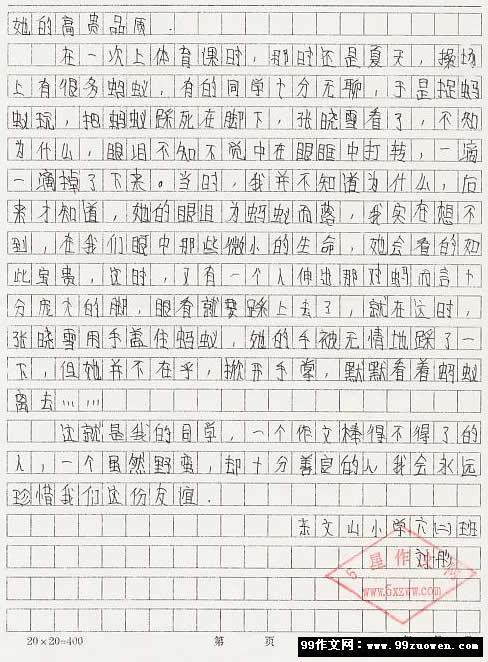 她的高贵品质.
在一次上体育课时，那时还是夏天，操场
上有很多蚂蚁，有的同学十分无聊，于是捉蚂
蚁玩，把蚂蚁踩死在脚下，张晓雪看了，不知
为什么，眼泪不知不觉中在眼眶中打转，一滴
一滴掉了下来。当时，我并不知道为什么，后
来才知道，她的眼泪为蚂蚁而落，我实在想不
到，在我们眼中那些微小的生命，她会看的如
此宝贵，这时，又有一个人伸出那对蚂而言十
分庞大的脚，眼看就要踩上去了，就在这时，
张晓雪用手盖住蚂蚁，她的手被无情地踩了一
下，但她并不在乎，掀开手掌，默默看着蚂蚁
离去……
这就是我的同学，一个作文棒得不得了的
人，一个虽然野蛮，却十分善良的人我会永远
珍惜我们这份友谊.
东文山小学六(二)班
5星作文网
www.5xzww.com
20×20=400 第 页
99作文网:www.99zuowen.com